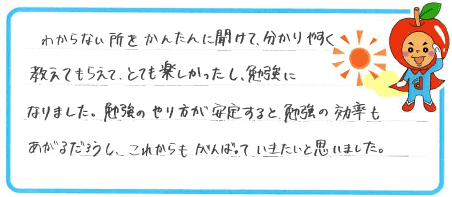 わからない所をかんたんに聞けて、分かりやすく
教えてもらえて、とても楽しかったし、勉強に
なりました。勉強のやり方が安定すると、勉強の効率も
あがるだろうし、これからもがんばっていきたいと思いました。